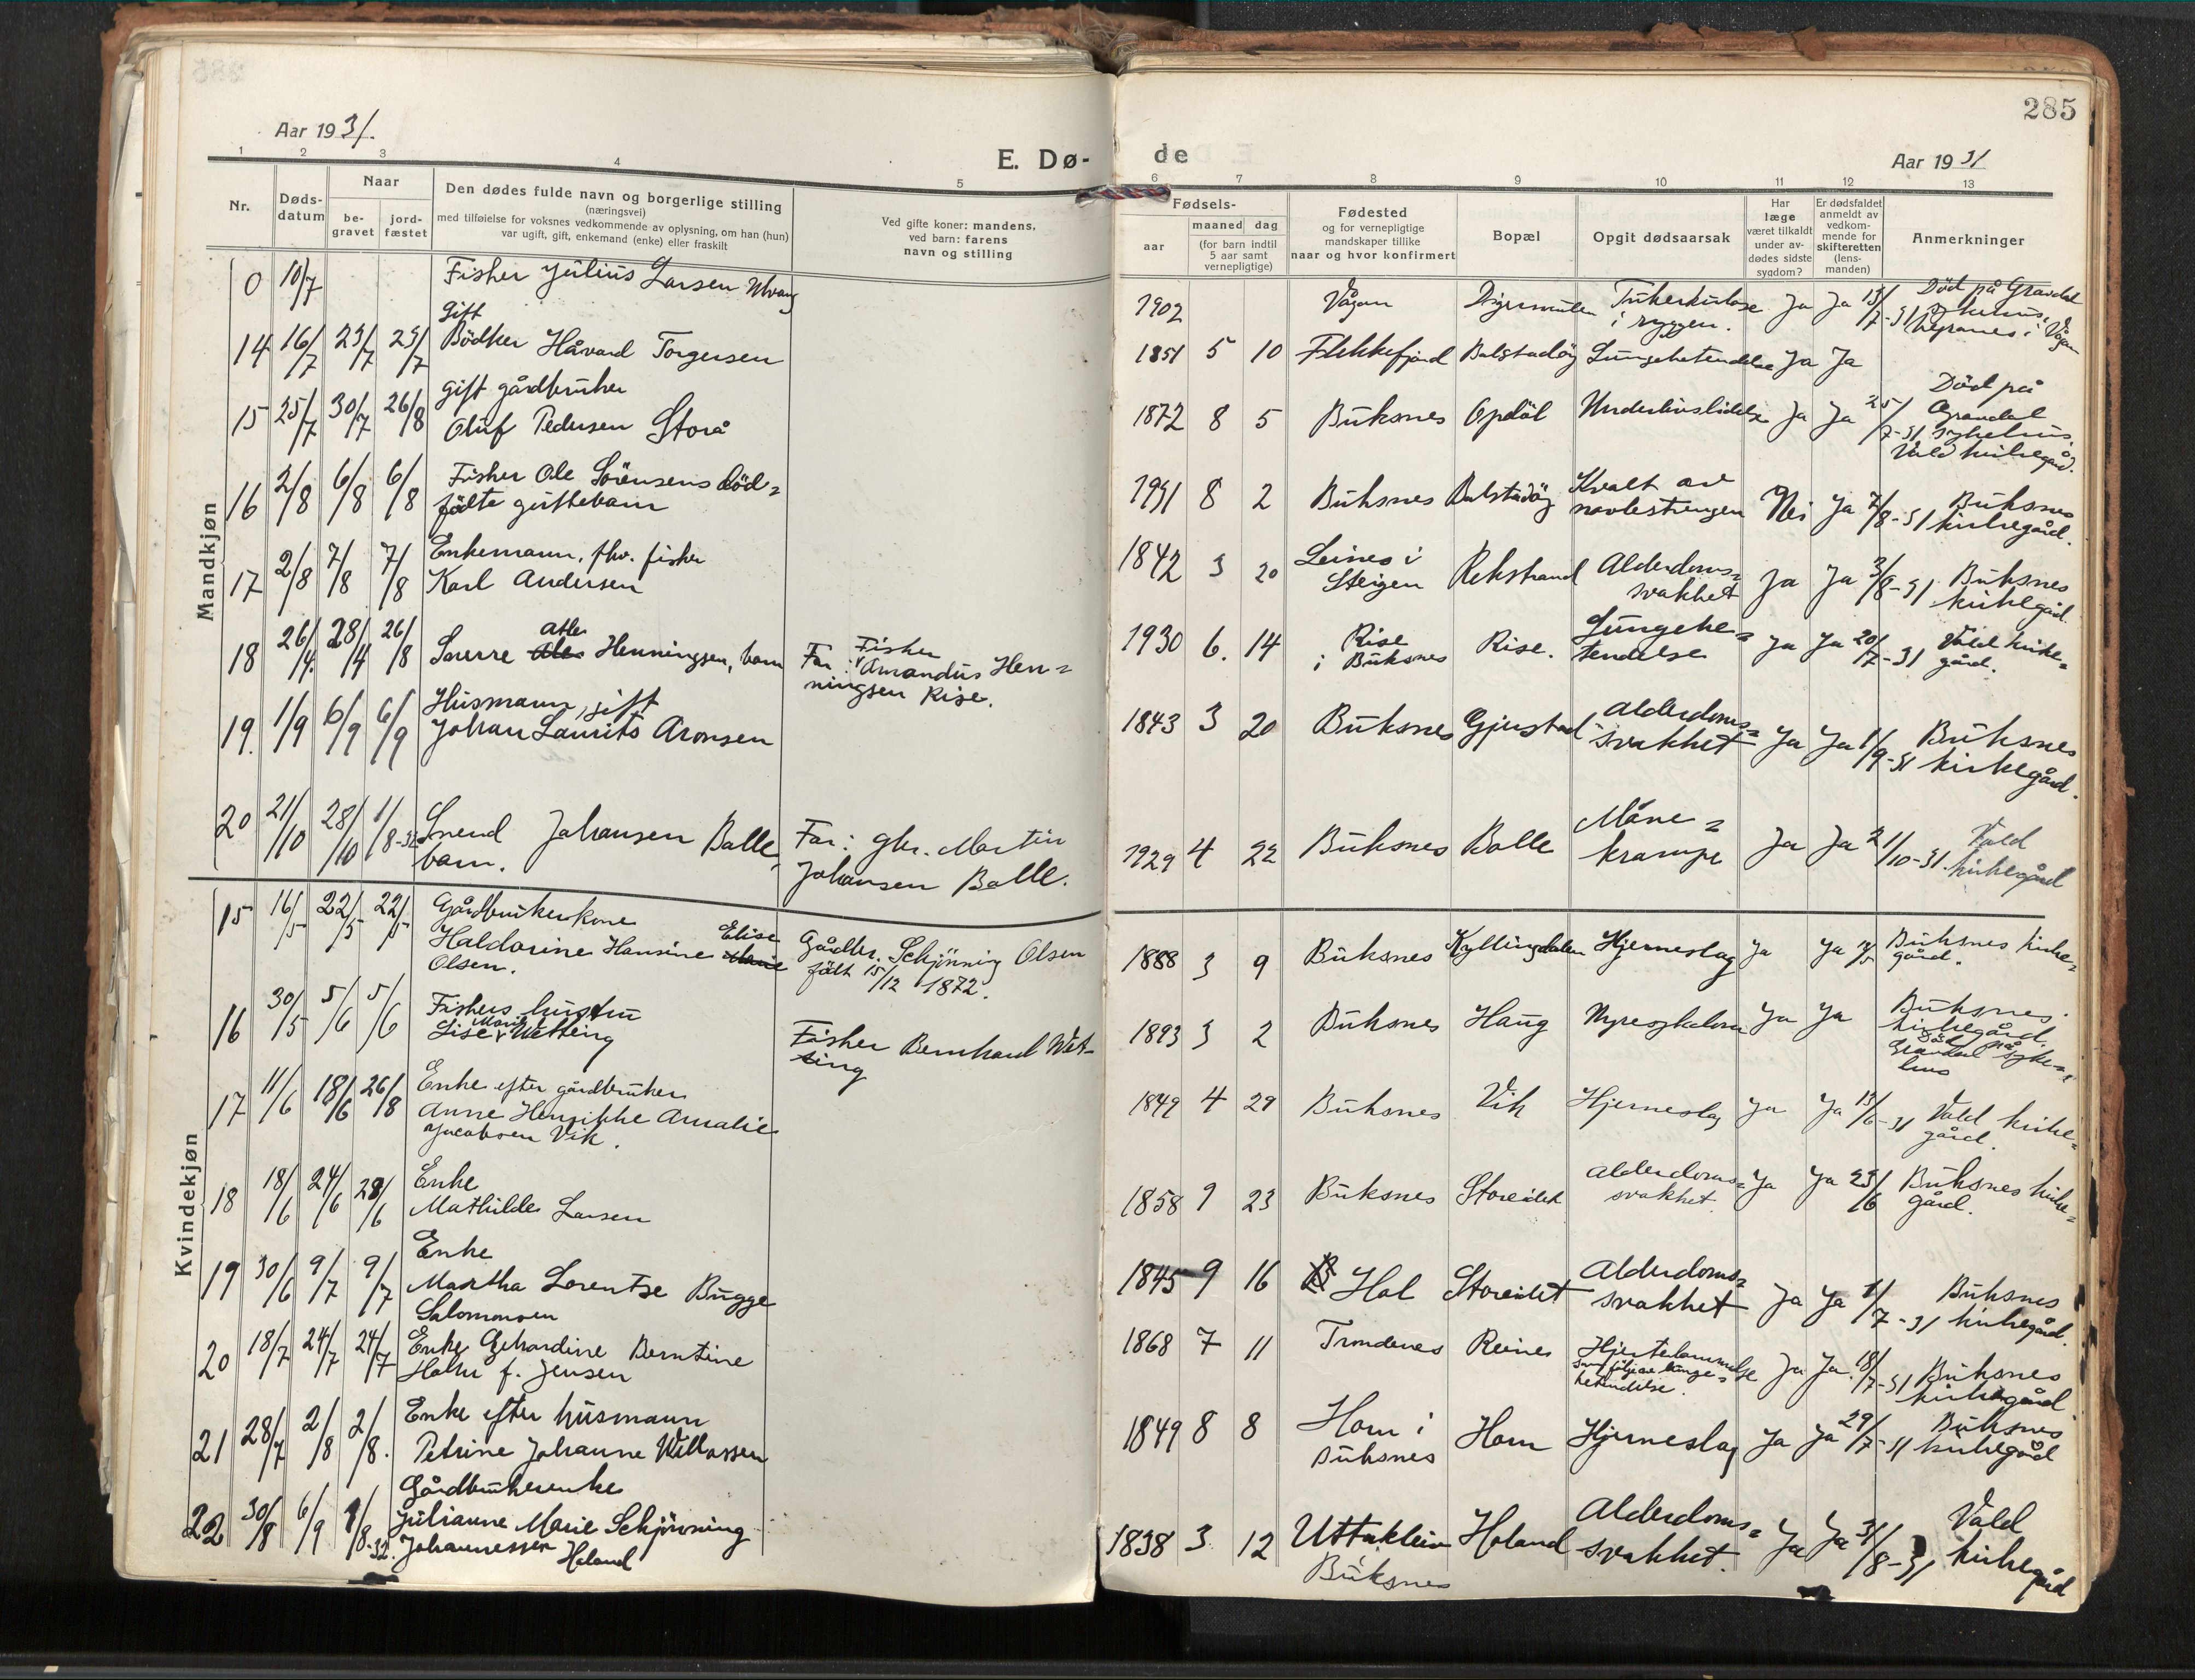 285
Aar 1931.
E. Dø-
de
Aar 1931
1 2 3 4 5
6 7 8 9 10 11 12 13
Nr.
Døds-
datum
Naar
be-
gravet
jord-
fæstet
Den dødes fulde navn og borgerlige stilling
(næringsvei)
med tilføielse for voksnes vedkommende av oplysning, om han (hun)
var ugift, gift, enkemand (enke) eller fraskilt
Ved gifte koner: mandens,
ved barn: farens
navn og stilling
Fødsels-
aar
maaned dag
(for barn indtil
5 aar samt
vernepligtige)
Fødested
og for vernepligtige
mandskaper tillike
naar og hvor konfirmert
Bopæl
Opgit dødsaarsak
Har
læge
været tilkaldt
under av-
dødes sidste
sygdom?
Er dødsfaldet
anmeldt av
vedkom-
mende for
skifteretten
(lens-
manden)
Anmerkninger
Mandkjøn
0 10/7 Fisker Julius Larsen Ulvang
1902 Vågan Digermulen Tuberkulose
i ryggen. Ja Ja 13/7-31 Død på Gravdal
sykehus.
i Vågan
14 16/7 23/7 23/7 gift
Bödker Håvard Torgersen
1851 5 10 Flekkefjord Balstadöy Lungebetendelse Ja Ja
15 25/7 30/7 26/8 gift gårdbruker
Oluf Pedersen Storå
1872 8 5 Buksnes Opdöl Underlivslidelse Ja Ja 25/7-31 Död på
Gravdal
sykehus.
Vald kirkegård.
16 2/8 6/8 6/8 Fisker Ole Sörensens död=
födte guttebarn
1931 8 2 Buksnes Balstadöy Kvalt av
navlestrengen Nei Ja 7/8-31 Buksnes
kirkegård.
17 2/8 7/8 7/8 Enkemann, fhv. fisker
Karl Andersen
1842 3 20 Leines i
Steigen Rekstrand Alderdoms=
svakhet Ja Ja 3/8-31 Buksnes
kirkegård.
18 26/4. 28/4 26/8 Sverre Atle Henningsen, barn
Far: Fisker
Amandus Hen=
ningsen Rise.
1930 6. 14 Rise
i Buksnes Rise. Lungebe=
tendelse Ja Ja 20/7-31 Vald kirke=
gård.
19. 1/9 6/9 6/9 Husmann, gift
Johan Laurits Aronsen
1843 3 20 Buksnes Gjerstad Alderdoms=
svakhet Ja Ja 1/9-31 Buksnes
kirkegård.
20 21/10 28/10 1/8-32 Svend Johansen Balle,
barn.
Far: gbr. Martin
Johansen Balle.
1929 4 22 Buksnes Balle Måne=
krampe Ja Ja 21/10-31. Vald
kirkegård
Kvindekjøn
15 16/5 22/5 22/5 Gårdbrukerkone
Haldorine Hansine Elise
Olsen.
Gårdbr. Schjönning Olsen
födt 15/12 1872.
1888 3 9 Buksnes Kyllingdalen Hjerneslag Ja Ja Buksnes kirke=
gård.
16 30/5 5/6 5/6 Fiskers hustru
Lise Marie Wetting
Fisker Bernhard Wet-
ting
1893 3 2 Buksnes Haug Ja Ja Buksnes
kirkegård.
Död på
Gravdal syke=
hus
17 11/6 18/6 26/8 Enke efter gårdbruker
Anne Henrikke Amalie
Jacobsen Vik.
1849 4 29 Buksnes Vik Hjerneslag Ja Ja 13/6-31 Vald kirke=
gård.
18 18/6 24/6 28/6 Enke
Mathilde Larsen
1858 9 23 Buksnes Storeidet Alderdoms=
svakhet. Ja Ja 23/6 Buksnes kirke=
gård.
19 30/6 9/7 9/7 Enke
Martha Lorentse Bugge
Salomonsen
1845 9 16 Hol Storeidet Alderdoms=
svakhet Ja Ja 1/7-31 Buksnes
kirkegård.
20 18/7 24/7 24/7 Enke Gerhardine Berntine
Holm f. Jensen
1868 7 11 Trondenes Reines Hjertelammelse
som følge av lunge=
betendelse. Ja Ja 18/7-31 Buksnes
kirkegård
21 28/7 2/8 2/8. Enke efter husmann
Petrine Johanne Willassen
1849 8 8 Horn i
Buksnes Horn Hjerneslag Ja Ja 29/7-31 Buksnes
kirkegård
22 30/8 6/9 1/8-32. Gårdbrukerenke
Julianne Marie Schjönning
Johannessen Holand
1838 3 12 Uttakleiv
Buksnes Holand Alderdoms=
svakhet. Ja Ja 31/8-31 Vald
kirkegård